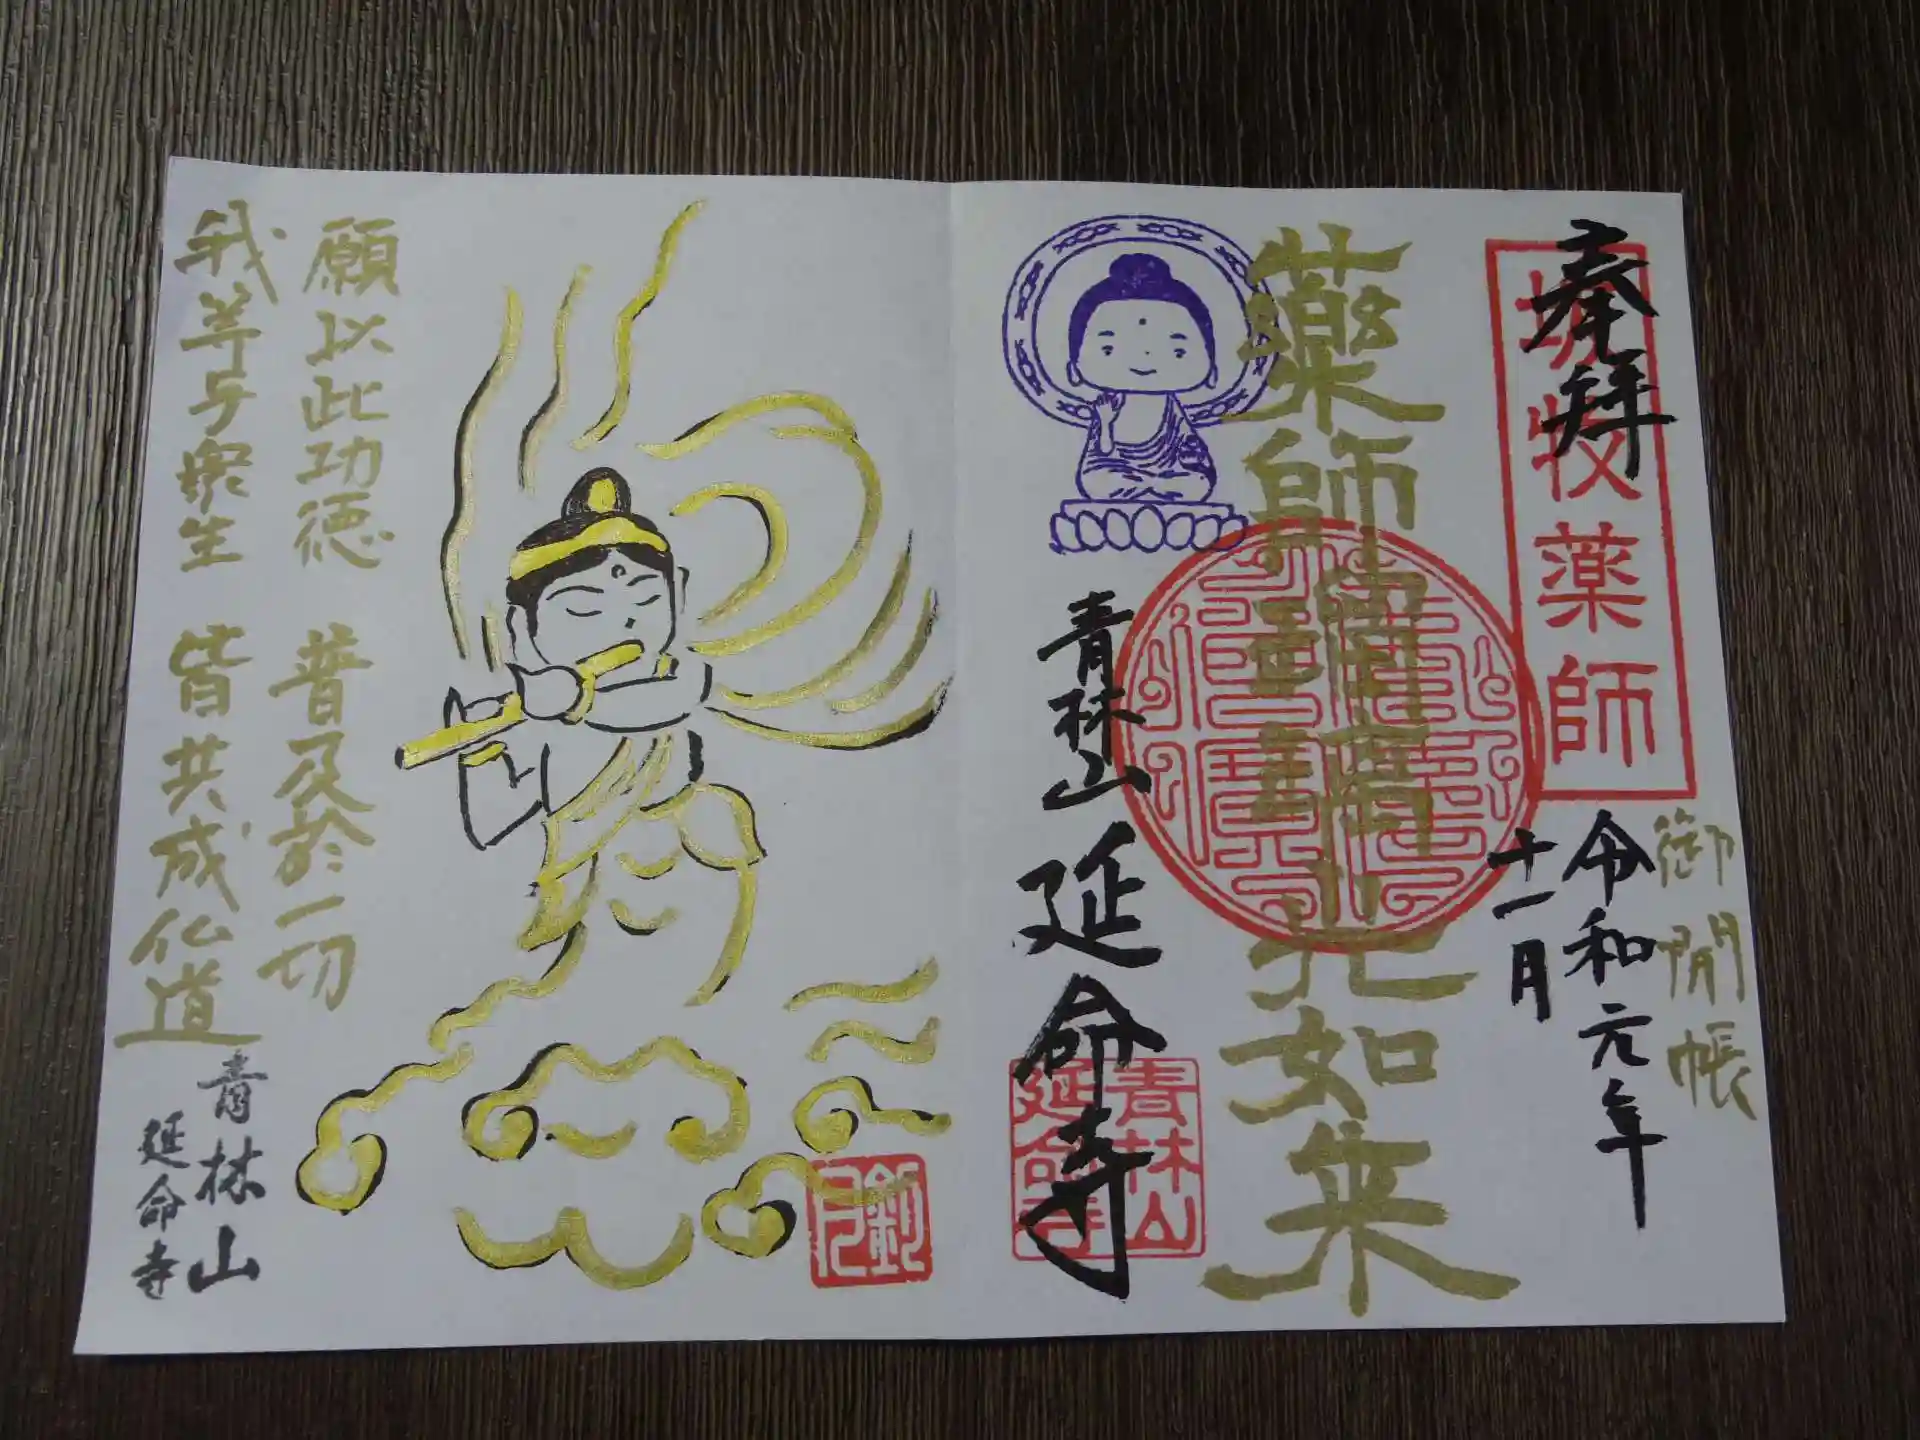 奉拝
坂牧薬師
御開帳
令和元年
十一月
薬師瑠璃光如来
青林山
延命寺
青林山
延命寺
願以此功徳 普及於一切
我等与衆生 皆共成仏道
青林山
延命寺